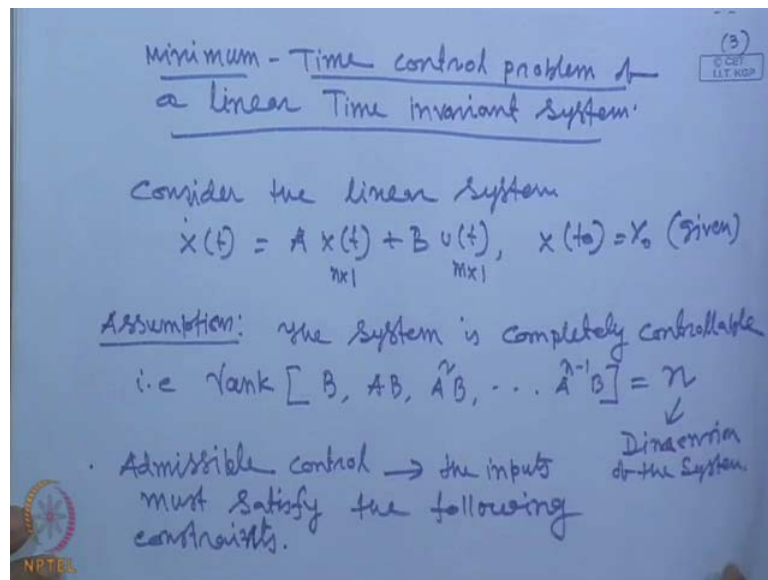 (3)
© CET
I.I.T. KGP
Minimum - Time control problem of
a linear Time invariant system.
Consider the linear system
ẋ(t) = A x(t) + B u(t), x(t₀) = x₀ (Given)
n×1 m×1
Assumption: The system is completely controllable
i.e rank [ B, AB, A²B, ... Aⁿ⁻¹B] = n
Dimension
of the System.
. Admissible control → the inputs
must satisfy the following
constraints.
NPTEL